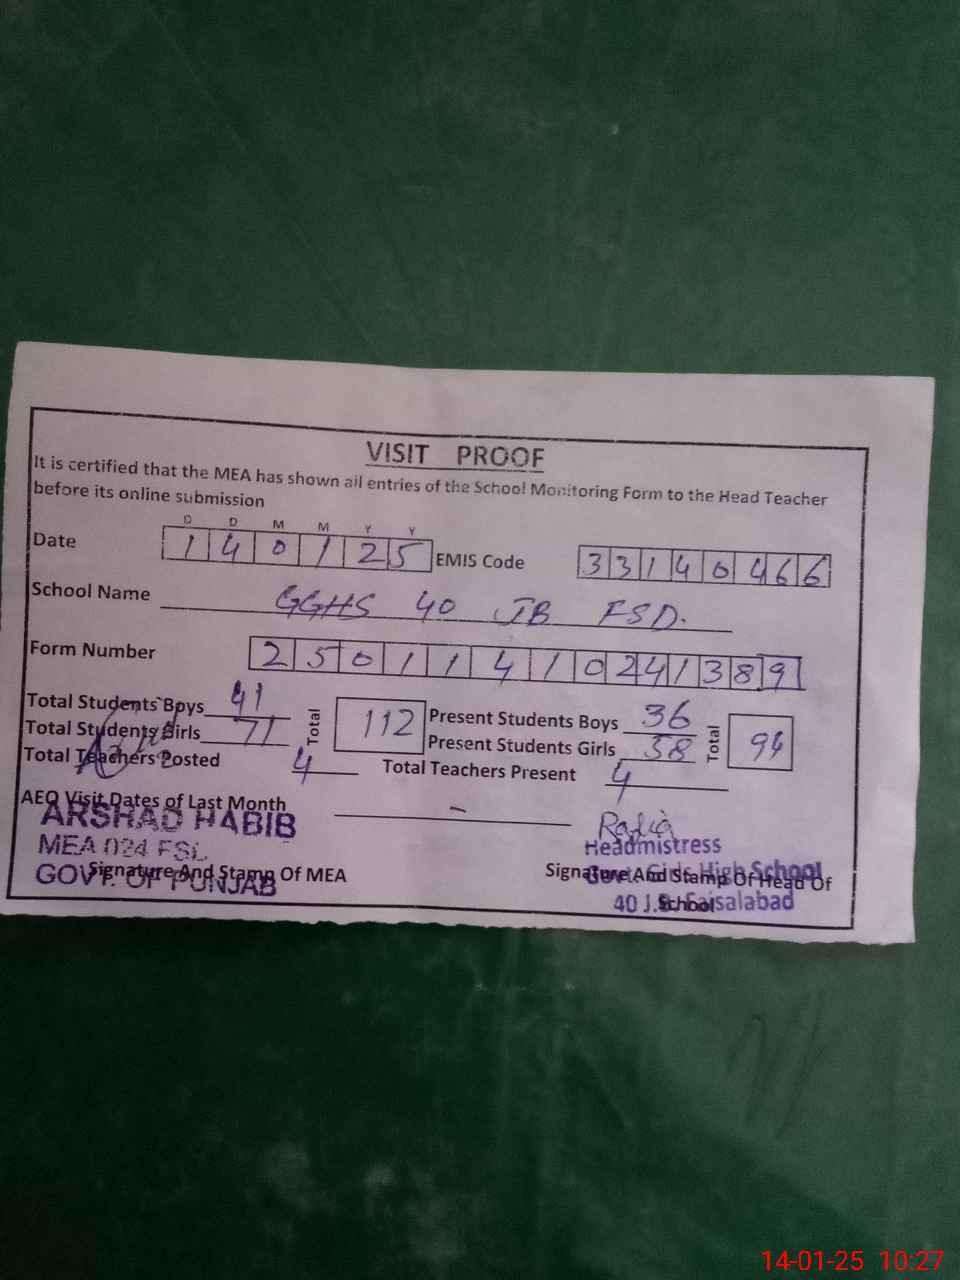 VISIT PROOF
It is certified that the MEA has shown all entries of the School Monitoring Form to the Head Teacher
before its online submission
D D M M Y Y
Date 1 4 0 1 2 5 EMIS Code 3 3 1 4 0 4 6 6
School Name GGHS 40 JB FSD.
Form Number 2 5 0 1 1 4 1 0 2 4 1 3 8 9
Total Students Boys 41 Total 112 Present Students Boys 36 Total 94
Total Students Girls 71 Present Students Girls 58
Total Teachers Posted 4 Total Teachers Present 4
AEO Visit Dates of Last Month -
ARSHAD HABIB
MEA 024 FSL
GOVT. OF PUNJAB
Signature And Stamp Of MEA
Rafia
Headmistress
Govt. Girls High School
40 J.B. Faisalabad
Signature And Stamp Of Head Of
School
14-01-25 10:27